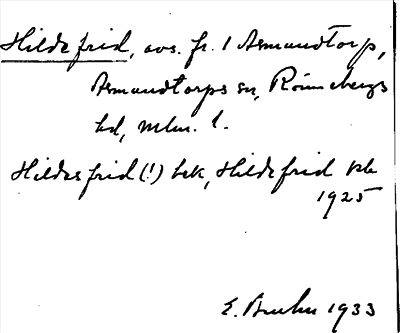 Hildefrid, avs. fr. 1 Asmundtorp,
Asmundtorps sn, Rönnebergs
hd, Mlm. l.
Hildesfrid (!) bek, Hildefrid kk
1925
E. Bruhn 1933